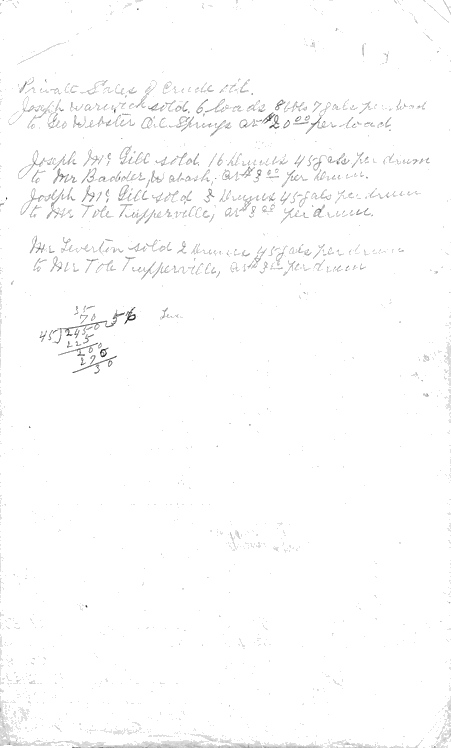 Private Sales of Crude Oil.
Joseph Warwick sold 6 loads 8 bbls 7 gals per load
to Geo Webster Oil Springs at $20.00 per load.
Joseph Mc Gill sold 16 Drums 45 gals per drum
to Mr Badder, Wabash, at $3.00 per Drum.
Joseph Mc Gill sold 3 Drums 45 gals per drum
to Mr Tole Tupperville, at $3.00 per drum.
Mr Leverton sold 2 Drums 45 gals per drum
to Mr Tole Tupperville, at $3.00 per drum
35
70
45 2450 5
225
200
270
30
Leve